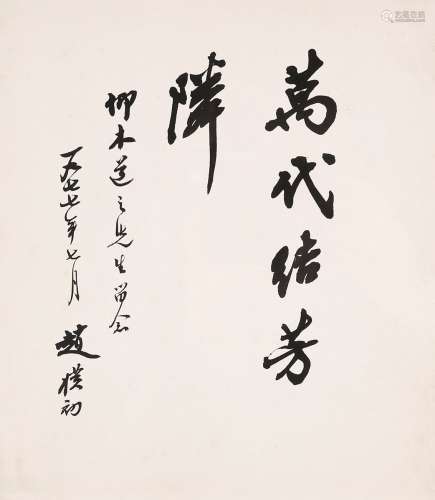 萬代結芳
隣
柳木道之先生留念
一九七七年七月
趙樸初